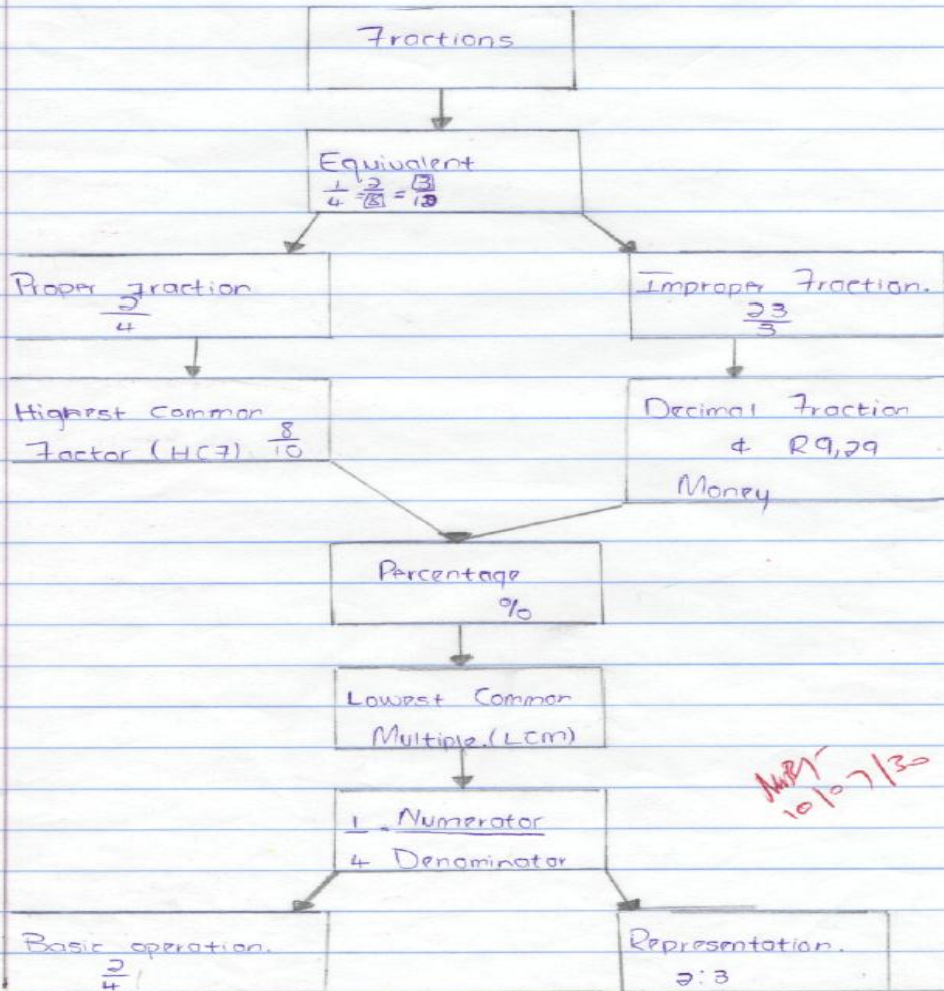 Fractions
Equivalent
1/4 = 2/8 = 3/12
Proper fraction
2/4
Improper Fraction.
23/3
Highest Common
Factor (HCF) 8/10
Decimal Fraction
& R9,29
Money
Percentage
%
Lowest Common
Multiple. (LCM)
1/4 = Numerator/Denominator
10/07/30
Basic operation.
2/4
Representation.
2:3